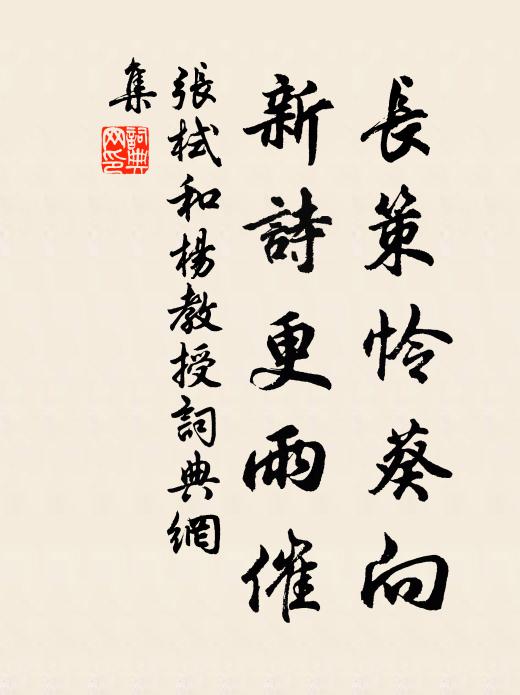 長策怜葵向
新詩更雨催
張栻和楊教授詞典網
集
詞典
网印